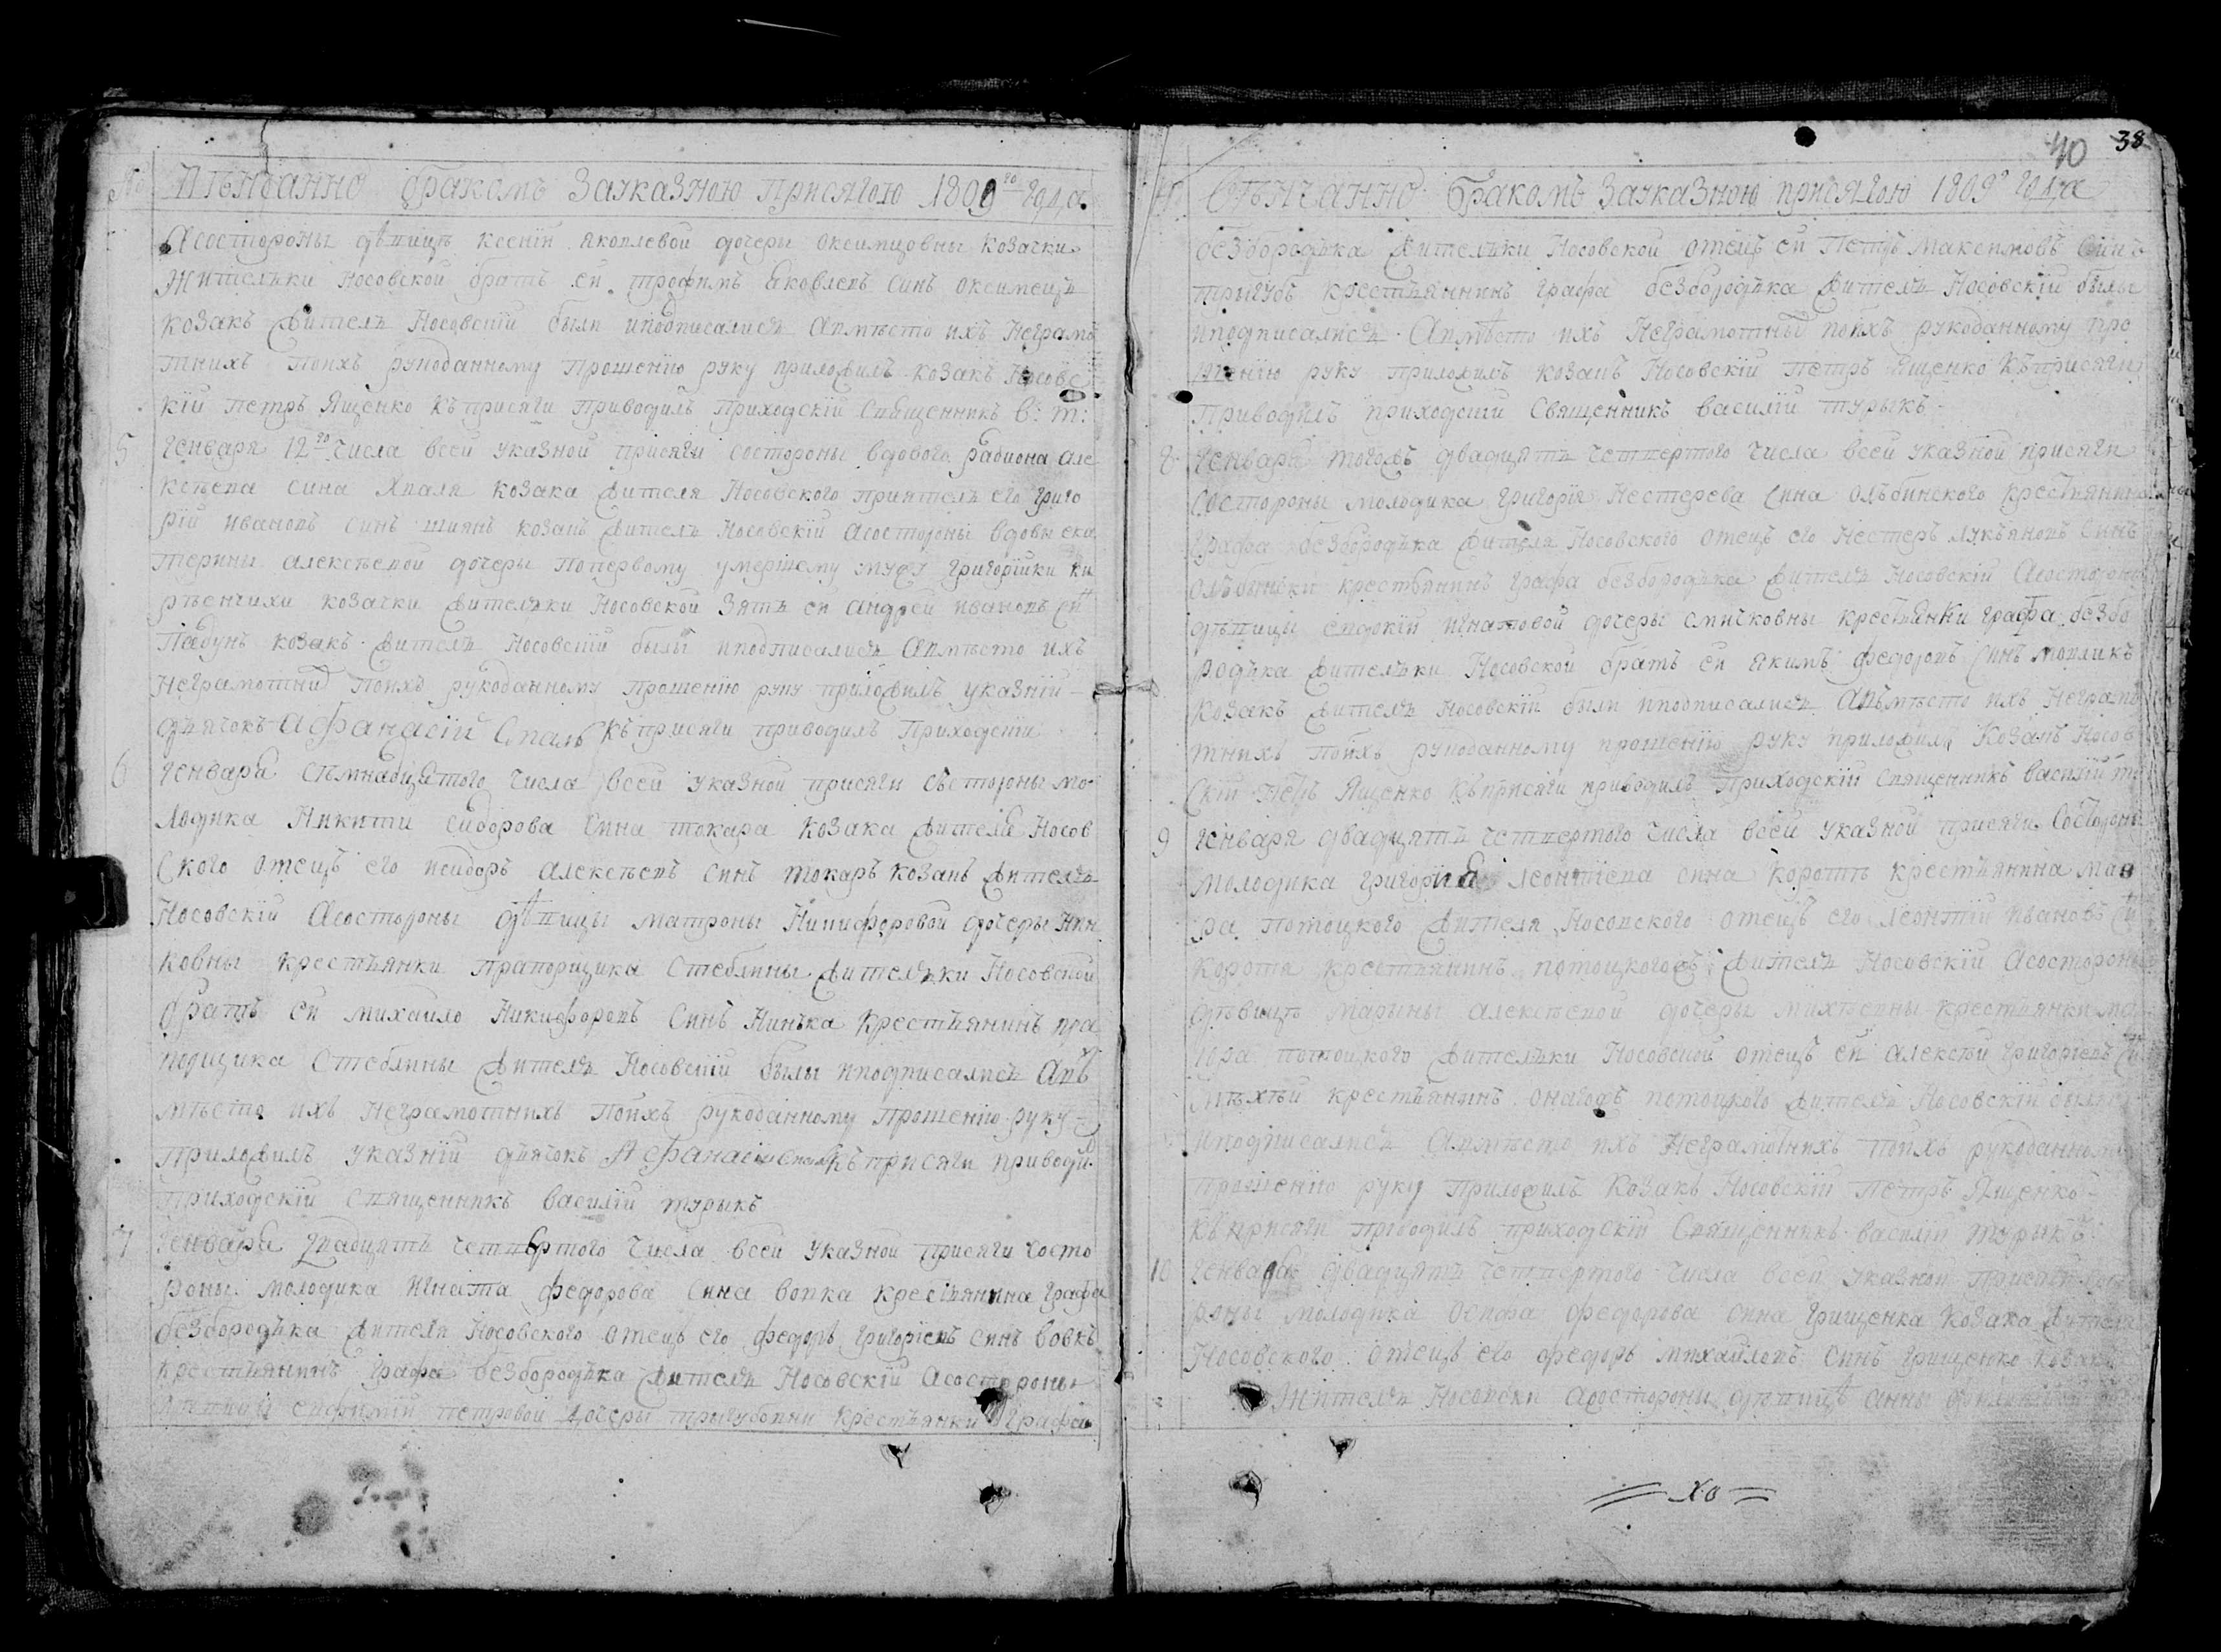 № Вѣнчанно бракомъ Зауказною Присягою 1809го года.
Асостороны дѣвицѣ Ксении Яковлевой дочеры Оксимцовны Козачки
Жителки Носовской братъ еи Трофимъ Яковлевъ синъ Оксимецъ
козакъ житель Носовский были иподписались Авмѣсто ихъ Неграмо
тнихъ Поихъ рукоданному Прошению руку приложилъ козакъ Носовс
кий Петръ Ященко Къприсяги Приводилъ Приходский Священникъ В: Т:
5 Генваря 12го числа всеи указной присяги состороны вдового Радиона Але
ксѣева сина Хваля козака жителя Носовского приятель его Григо
рий Ивановъ синъ Шиянъ козакъ житель Носовский Асостороны вдовы Ека
терины Алексѣевой дочеры Попервому умершему мужу Григорийки Ки
козачки жителки Носовской Зять еи Андрей Ивановъ си
козакъ житель Носовский былы иподписались Авмѣсто ихъ
Неграмотних Поихъ рукоданному прошению руку приложилъ указний
дьячокъ Афанасий Къприсяги приводилъ Приходский
6 Генваря семнадцятого числа всеи указной присяги состороны мо
лодика Никити Сидорова Сина Токара Козака жителя Носов
ского отецъ его Исидоръ Алексѣевъ синъ Токаръ козакъ житель
Носовский Асостороны дѣвицы Матроны Никифоровой дочеры Нин
ковны крестьянки прапорщика Стеблины жителки Носовской
братъ еи Михайло Никифоровъ Синъ Нинька Крестьянинъ пра
порщика Стеблины житель Носовский былы иподписались Авъ
мѣсто ихъ Неграмотнихъ Поихъ рукоданному прошению руку
приложилъ указний дьячокъ Афанасий Къприсяги приводил
Приходский Священникъ Василий Турыкъ
7 Генваря двадцять четвертого числа всеи указной присяги состо
роны молодика Игната Федорова Сина Вовка крестьянина графа
безбородька жителя Носовского отецъ его Федоръ Григориевъ синъ Вовкъ
Крестьянинъ графа безбородька житель Носовский Асостороны
дѣвицы Евфимии Петровой Дочеры Тригубовни Крестьянки Графа
40 38
№ Вѣнчанно Бракомъ Зауказною присягою 1809го года
безбородька жителки Носовской отецъ еи Петръ Максимовъ Синъ
Тригубъ крестьянинъ графа безбородька житель Носовский былы
иподписались Авмѣсто ихъ Неграмотных поихъ рукоданному про
шению руку приложилъ козакъ Носовский Петръ Ященко Къприсяги
Приводилъ приходский Священникъ Василий Турыкъ
8 Генваря двадцять четвертого числа всеи указной присяги
Состороны молодика Григория Нестерова Сина Ольбинского крестьянина
Графа безбородька жителя Носовского отецъ его Нестеръ Лукьяновъ Синъ
крестьянинъ графа безбородька житель Носовский Асостороны
дѣвицы Евдокии Игнатовой дочеры Смичковны крестьянки графа безбо
родька жителки Носовской братъ еи Якимъ Федоровъ Синъ
Козакъ житель Носовский были иподписались Авъмѣсто ихъ Неграмо
тнихъ поихъ рукоданному прошению руку приложилъ Козакъ Носов
ский Петръ Ященко Къприсяги приводилъ Приходский Священникъ Василий
9 Генваря двадцять четвертого числа всеи указной присяги Состороны
Молодика Григория Леонтиева сина Коротѣ крестьянина Мао
ра Потоцкого жителя Носовского отецъ его Леонтий Ивановъ си
Коротя крестьянинъ Потоцкогожъ житель Носовский Асостороны
дѣвицѣ Марыны Алексѣевой дочеры крестьянки ма
иора Потоцкого жителки Носовской отецъ еи Алексѣй Григориевъ си
крестьянинъ онагожъ потоцкого житель Носовский былы
иподписались Авмѣсто ихъ Неграмотнихъ поихъ рукоданному
прошению руку приложилъ Козакъ Носовский Петръ Ященко
Къприсяги приводилъ приходский Священникъ Василий Турыкъ
10 Генваря двадцять четвертого числа всеи указной присяги
роны молодика Осифа Федорова Сина Грищенка Козака жителя
Носовского отецъ его Федоръ Михайловъ синъ Грищенко козакъ
Житель Носовски Асостороны дѣвицѣ Анны
хо